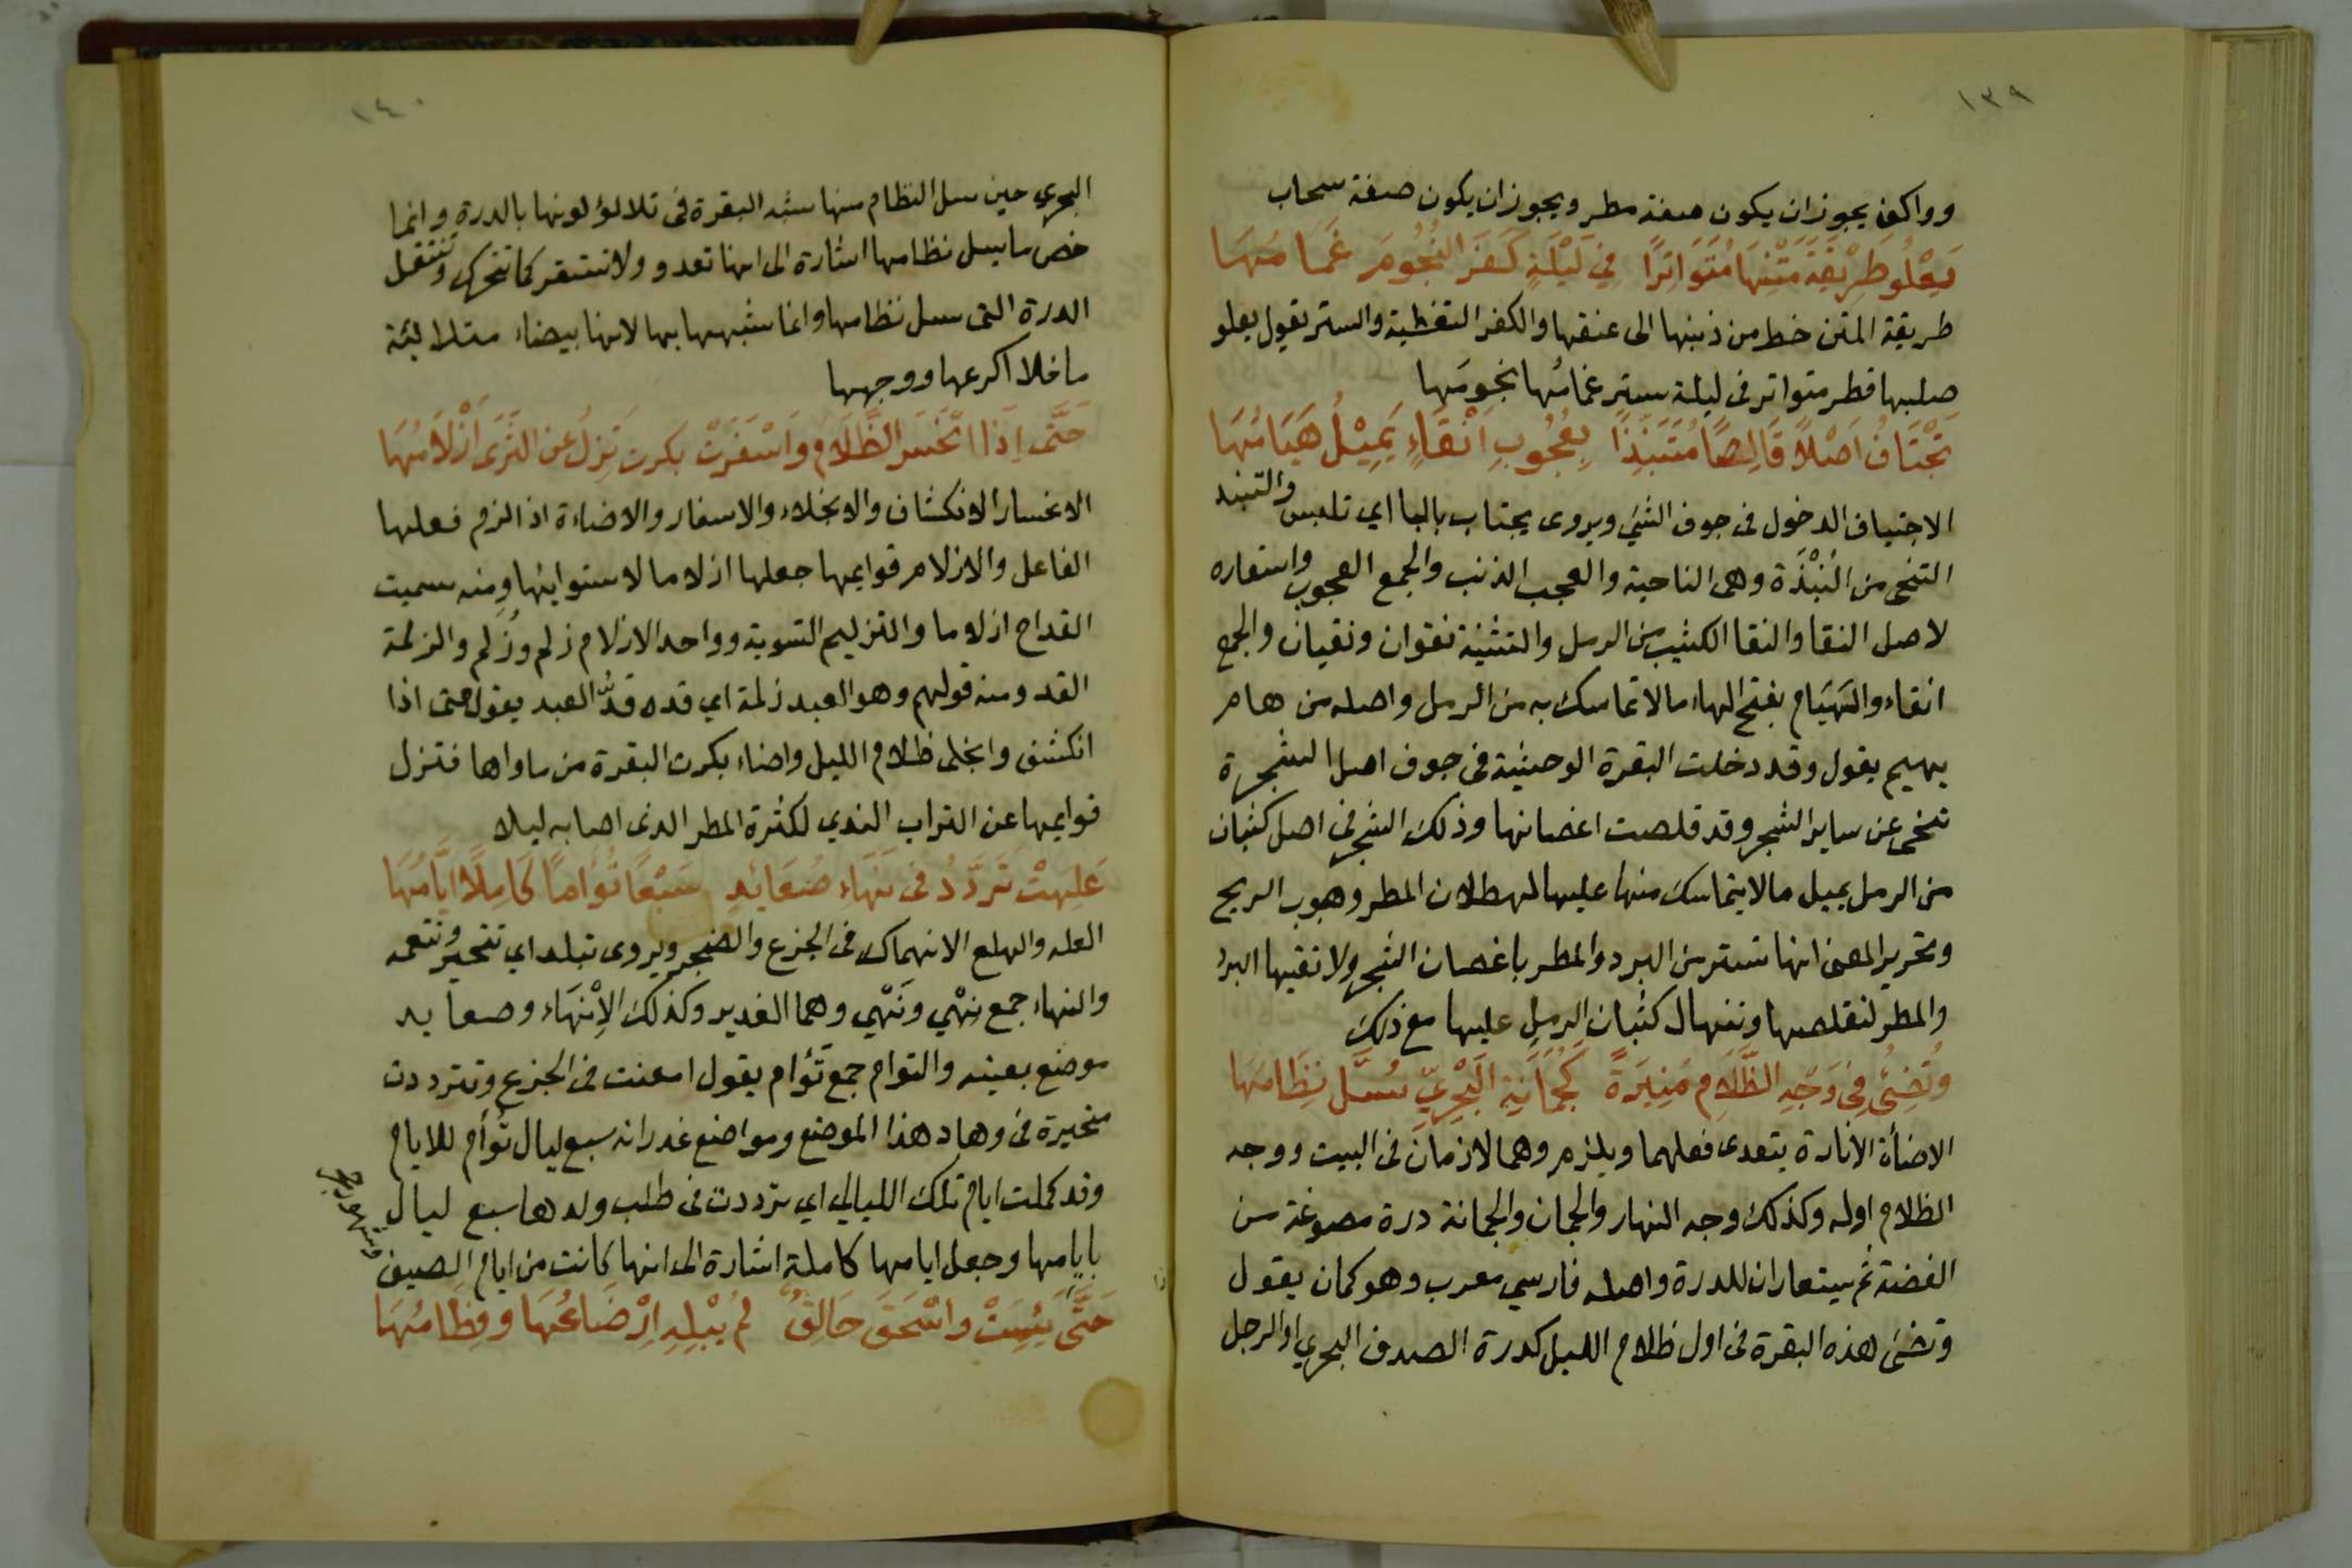 ١٣٩
وواكف يجوز ان يكون صفة مطر ويجوز ان يكون صفة سحاب
يَعْلُو طَرِيْقَةَ مَتْنِهَا مُتَوَاتِرًا فِي لَيْلَةٍ كَفَرَ النُّجُومَ غَمَامُهَا
طريقة المتن خط من ذنبها الى عنقها والكفر التغطية والستر يقول يعلو
صلبها قطر متواتر فى ليلة ستر غمامُها نجومَها
تَجْتَافُ اَصْلًا قَالِصًا مُتَنَبِّذًا بِعُجُوبِ اَنْقَاءٍ يَمِيْلُ هَيَامُهَا
الاجتياف الدخول فى جوف الشئ ويروى يجتاب بالبا اي تلبس والتنبذ
التنحى من النُبْذَة وهى الناحية والعجب الذنب والجمع العجوب واستعاره
لاصل النقا والنقا الكثيب من الرمل والتثنية نقوان ونقيان والجمع
انقاء والهَيَام بفتح الهاء مالا تماسك به من الرمل واصله من هام
يهيم يقول وقد دخلت البقرة الوحشية فى جوف اصل الشجرة
تنحى عن ساير الشجر وقد قلصت اغصانها وذلك الشجر فى اصل كثبان
من الرمل يميل مالا يتماسك منها عليها لهطلان المطر وهبوب الريح
وتحرير المعنى انها تستتر من البرد والمطر باغصان الشجر ولا تقيها البرد
والمطر لتقلصها وتنهال كثبان الرمل عليها مع ذلك
وَتُضِئُ فِى وَجْهِ الظَّلَامِ مُنِيرَةً كَجُمَانَةِ الْبَحْرِيِّ سُلَّ نِظَامُهَا
الاضأة الانارة يتعدى فعلهما ويلزم وهما لازمان فى البيت ووجه
الظلام اوله وكذلك وجه النهار والجمان والجمانة درة مصوغة من
الفضة ثم يستعاران للدرة واصله فارسي معرب وهو كمان يقول
وتضئ هذه البقرة فى اول ظلام الليل كدرة الصدف البحري او الرجل
١٤٠
البحري حين سل النظام منها شبه البقرة فى تلالؤ لونها بالدرة وانما
خص ما يسل نظامها اشارة الى انها تعدو ولا تستقر كما تتحرك وتنتقل
الدرة التى سل نظامها وانما شبهها بها لانها بيضاء متلالئة
ماخلا اكرعها ووجهها
حَتَّى اِذَا انْحَسَرَ الظَّلَامُ وَاسْفَرَتْ بكرت تَزِلُّ عَنِ الثَّرَى اَزْلَامُهَا
الانحسار الانكشاف والانجلاء والاسفار والاضاءة اذا لزم فعلها
الفاعل والازلام قوايمها جعلها ازلاما لاستوايئها ومنه سميت
القداح ازلاما والتزليم التسوية وواحد الازلام زلم وزُلم والزلمة
القد ومنه قولهم وهو العبد زلمة اي قده قدُّ العبد يقول حتى اذا
انكشف وانجلى ظلام الليل واضاء بكرت البقرة من ماواها فتزل
قوايمها عن التراب الندي لكثرة المطر الذى اصابه ليلا
عَلِهَتْ تَرَدَّدُ فى نِهَاءِ صُعَائِدٍ سَبْعًا تُؤَامًا كَامِلًا اَيَّامُهَا
العله والهلع الانهماك فى الجزع والضجر ويروى تبلد اي تتحير وتتعمه
والنهاء جمع نِهْي ونَهْي وهما الغدير وكذلك الاِنْهَاء وصعايد
موضع بعينه والتوام جمع تَوْأم يقول امعنت فى الجزع وتترددت
متحيرة فى وهاد هذا الموضع ومواضع غدرانه سبع ليال تُوأم للايام
وقد كملت ايام تلك الليالي اي ترددت فى طلب ولدها سبع ليال
بايامها وجعل ايامها كاملة اشارة الى انها كانت من ايام الصيف
حَتَّى يَئِسَتْ وَاسْحَقَ حَالِقٌ لَمْ يُبْلِهِ اِرْضَاعُهَا وفِطَامُهَا